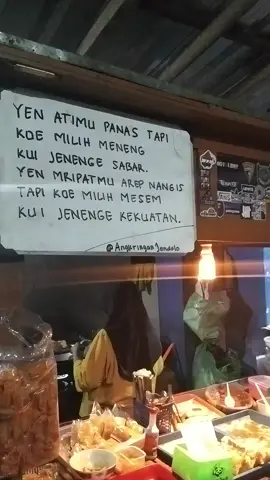 YEN ATIMU PANAS TAPI
KOE MILIH MENENG
KUI JENENGE SABAR.
YEN MRIPATMU AREP NANGIS
TAPI KOE MILIH MESEM
KUI JENENGE KEKUATAN.
@Angkringan Jendelo